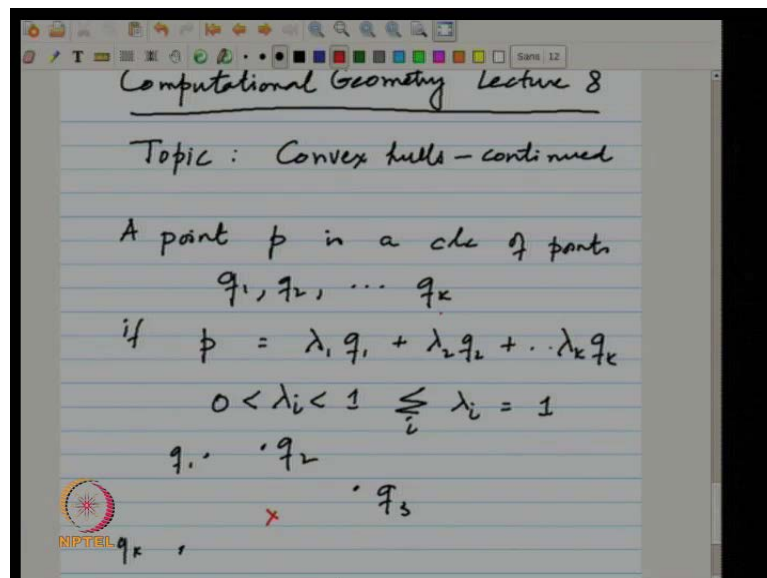 T Sans 12
Computational Geometry Lecture 8
Topic : Convex hulls – continued
A point p is a clc of points
q₁, q₂, ... qₖ
if p = λ₁ q₁ + λ₂ q₂ + .. λₖ qₖ
0 < λᵢ < 1 ∑ᵢ λᵢ = 1
q₁ · · q₂
· q₃
×
NPTEL qₖ ·